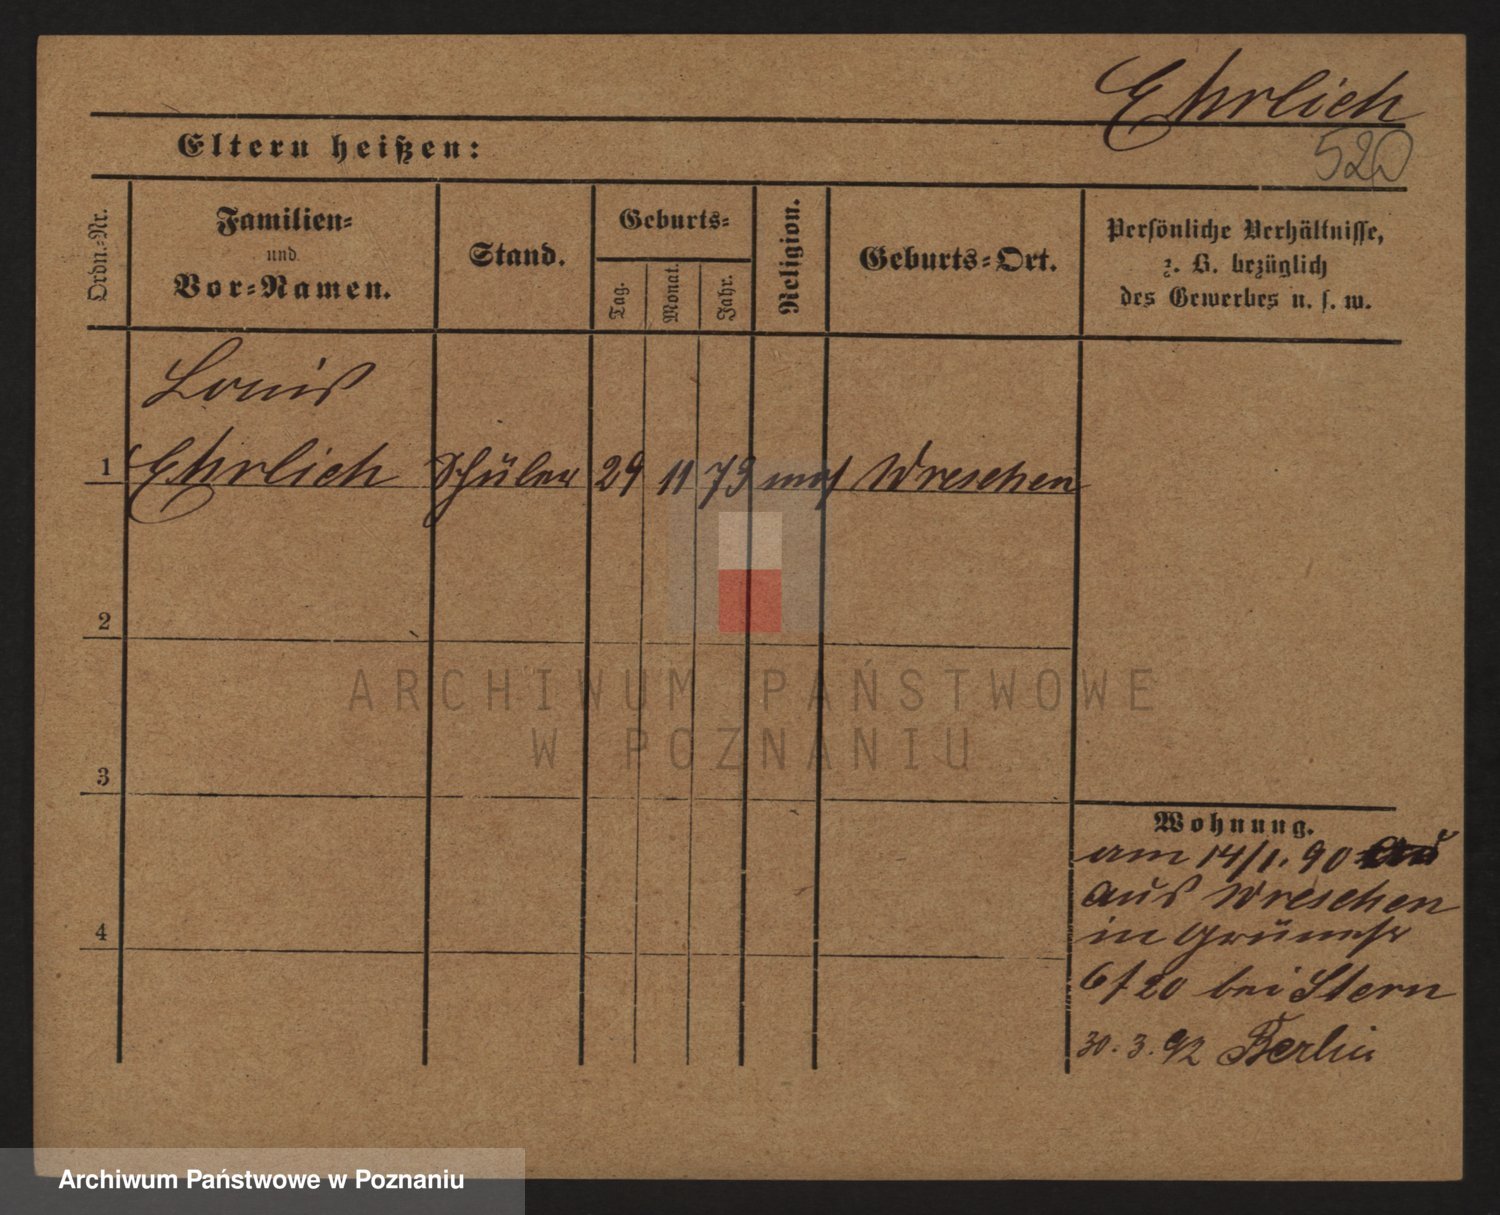 Ehrlich
520
Eltern heißen:
Ordn.-Nr.
Familien-
und
Vor-Namen.
Stand.
Geburts-
Tag.
Monat.
Jahr.
Religion.
Geburts-Ort.
Persönliche Verhältnisse,
z. B. bezüglich
des Gewerbes u. s. w.
Louis
1 Ehrlich Schüler 24 11 79 mos Wreschen
2
3
4
Wohnung.
am 14/1. 90
aus Wreschen
in Grünestr
6/20 bei Stern
30. 3. 92 Berlin
ARCHIWUM PAŃSTWOWE
W POZNANIU
Archiwum Państwowe w Poznaniu